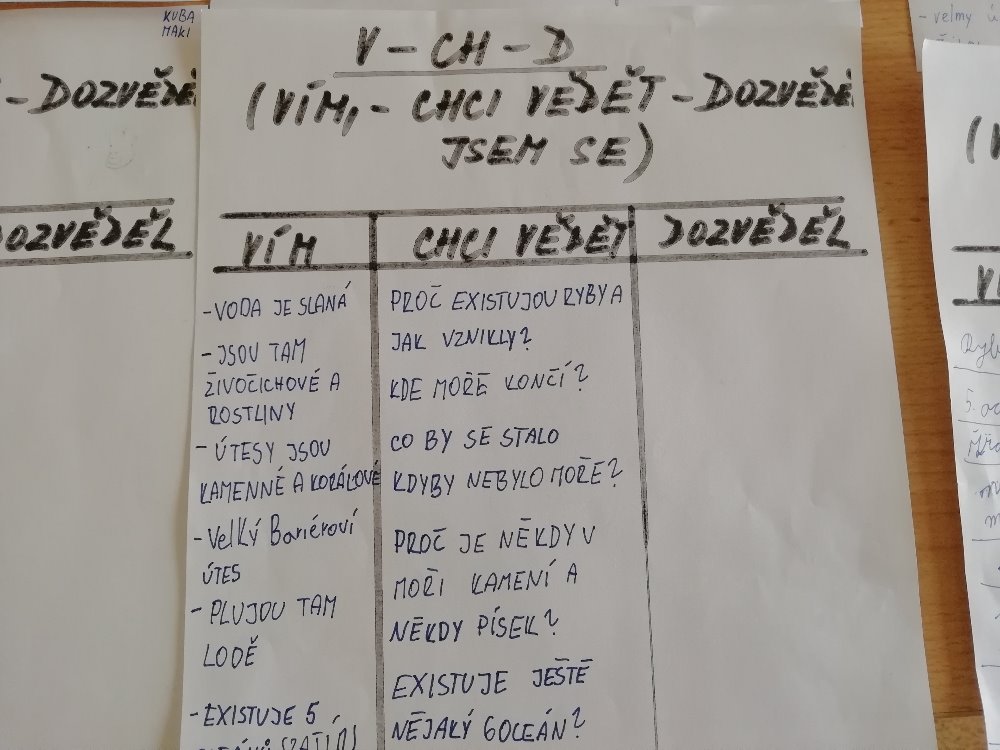 KUBA
MAKI
- velmy
- DOZVĚDĚ
DOZVĚDĚL
V - CH - D
(VÍM, - CHCI VĚDĚT - DOZVĚDĚ
JSEM SE)
VÍM
- VODA JE SLANÁ
- JSOU TAM
ŽIVOČICHOVÉ A
ROSTLINY
- ÚTESY JSOU
KAMENNÉ A KORÁLOVÉ
- Velký Bariéroví
ÚTES
- PLUJOU TAM
LODĚ
- EXISTUJE 5
CHCI VĚDĚT
PROČ EXISTUJOU RYBY A
JAK VZNIKLY?
KDE MOŘE KONČÍ?
CO BY SE STALO
KDYBY NEBYLO MOŘE?
PROČ JE NĚKDY V
MOŘI KAMENÍ A
NĚKDY PÍSEK?
EXISTUJE JEŠTĚ
NĚJAKÝ 6 OCEÁN?
DOZVĚDĚL